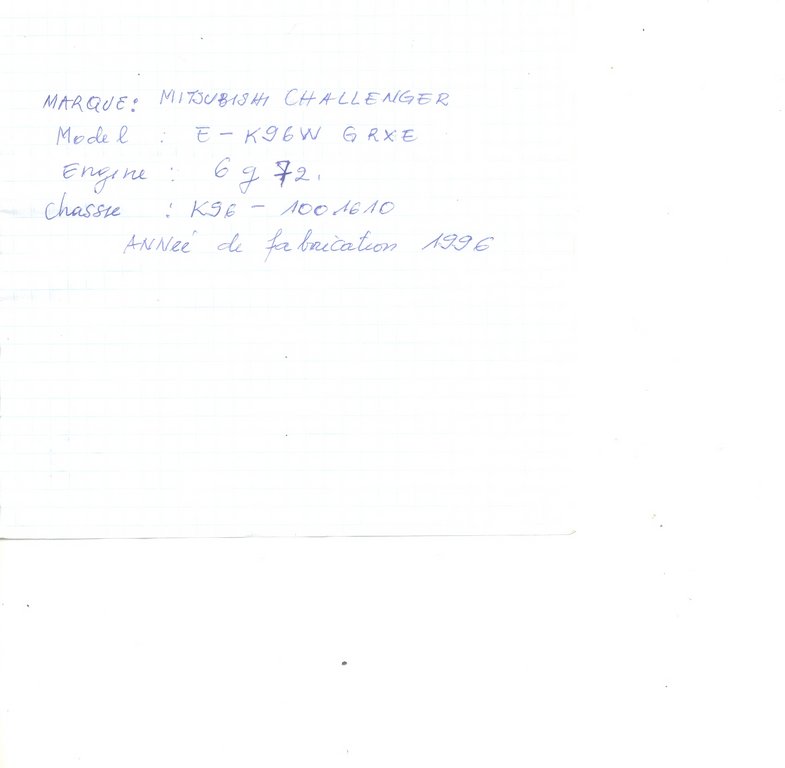 MARQUE: MITSUBISHI CHALLENGER
Model : E - K96W GRXE
Engine : 6 g 72.
Chassie : K96 - 1001610
ANNeé de fabrication 1996